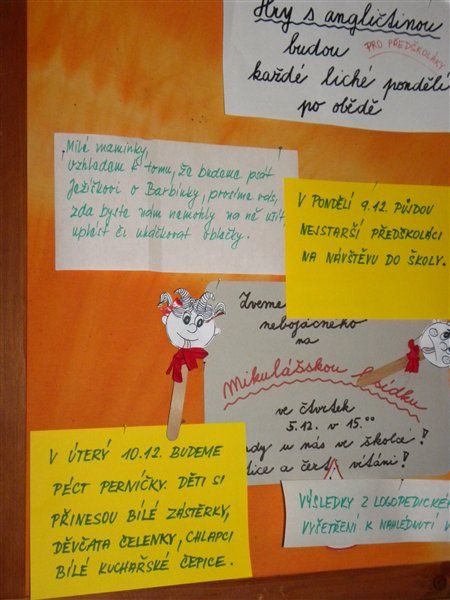 Hry s angličtinou
budou PRO PŘEDŠKOLÁKY
každé liché pondělí
po obědě
Milé maminky,
vzhledem k tomu, že budeme psát
Ježíškovi o Barbínky, prosíme vás,
zda byste nám nemohly na ně ušít,
uplést či uháčkovat oblečky.
V PONDĚLÍ 9.12. PŮJDOU
NEJSTARŠÍ PŘEDŠKOLÁCI
NA NÁVŠTĚVU DO ŠKOLY.
Zveme
nebojácného
na
Mikulášskou
ve čtvrtek
5.12. v 15.00
u nás ve školce!
a čerti vítáni!
V ÚTERÝ 10.12. BUDEME
PÉCT PERNÍČKY. DĚTI SI
PŘINESOU BÍLÉ ZÁSTĚRKY,
DĚVČATA ČELENKY, CHLAPCI
BÍLÉ KUCHAŘSKÉ ČEPICE.
VÝSLEDKY Z LOGOPEDICKÉH
VYŠETŘENÍ K NAHLÉDNUTÍ V